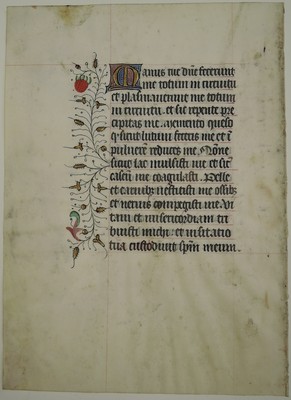 Manus tue dñe fecerunt
me totum in circuitu
et plasmaverunt me totum
in circuitu. et sic repente pre
cipitas me. Memento queso
q̃ sicut lutum feceris me et ĩ
pulverẽ reduces me. Nõne
sicut lac mulsisti me et sic̃
caseũ me coagulasti. Pelle
et carnibꝫ vestisti me ossibꝫ
et nervis compegisti me. Vi
tam et misericordiam tri
buisti michi: et visitatio
tua custodivit sp̃m meum.